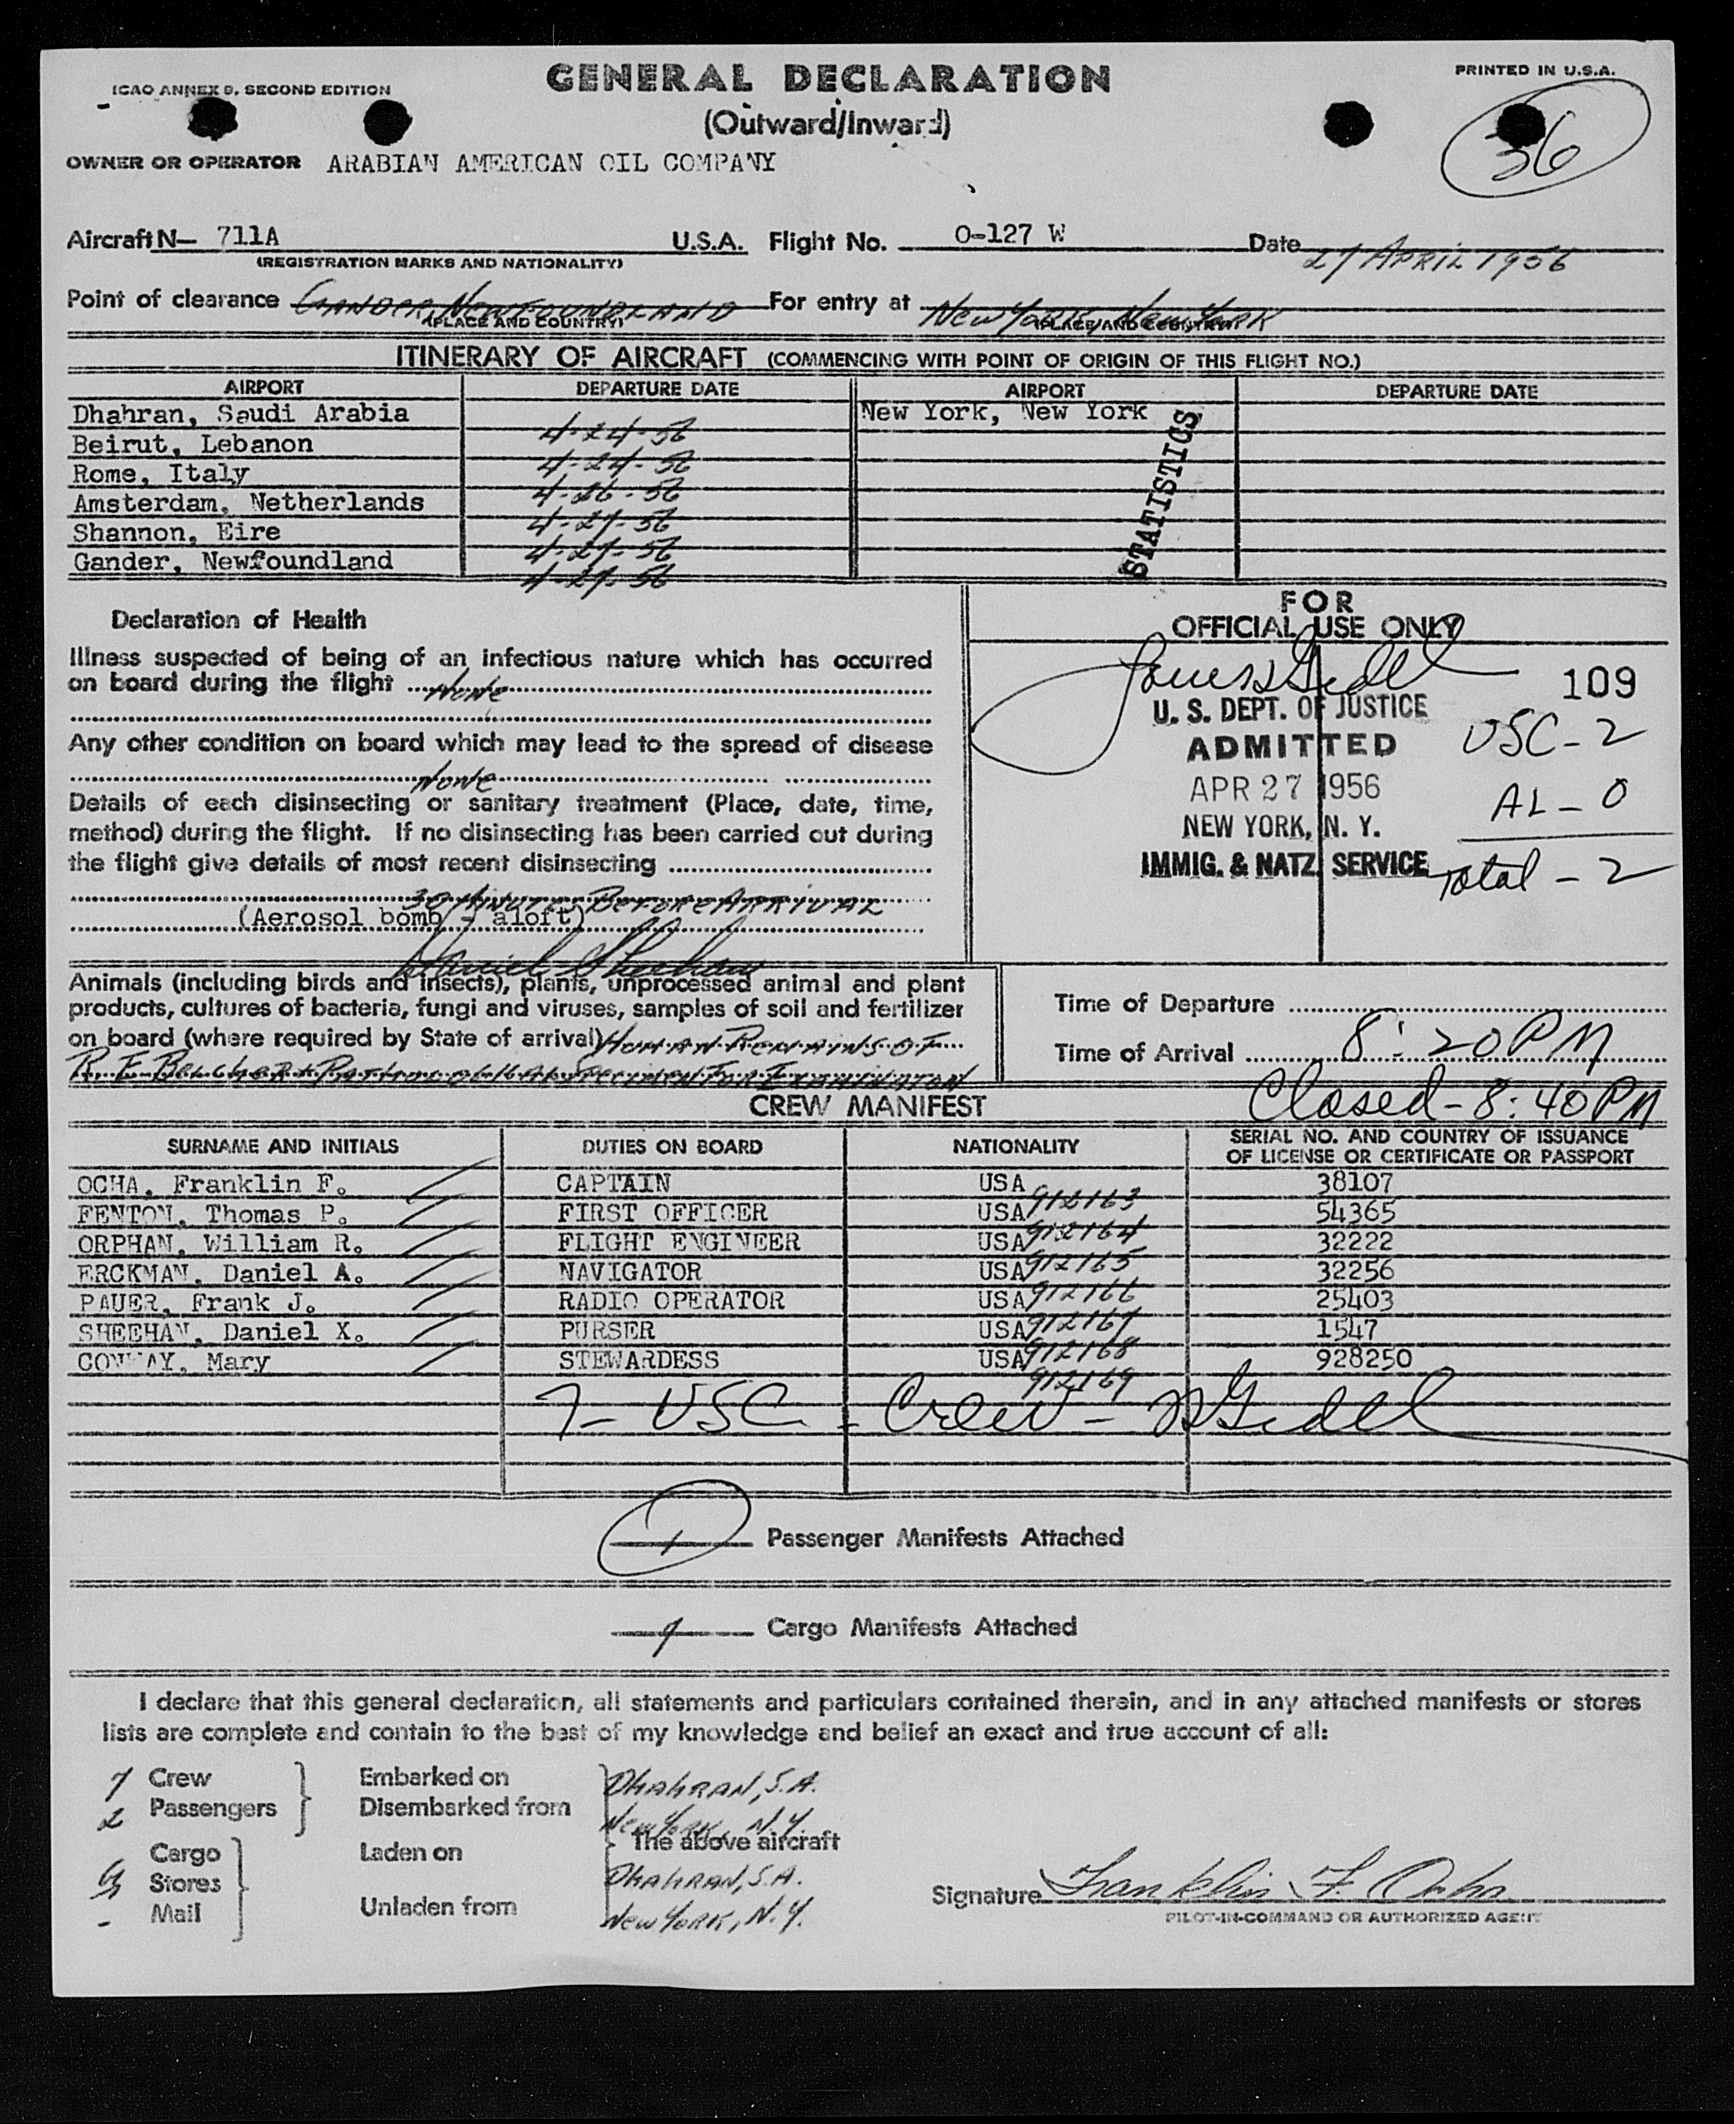 ICAO ANNEX 9, SECOND EDITION
GENERAL DECLARATION
PRINTED IN U.S.A.
(Outward/Inward)
36
OWNER OR OPERATOR ARABIAN AMERICAN OIL COMPANY
Aircraft N— 711A U.S.A. Flight No. O-127 W Date 27 APRIL 1956
(REGISTRATION MARKS AND NATIONALITY)
Point of clearance GANDER, NEWFOUNDLAND For entry at NEW YORK, NEW YORK
(PLACE AND COUNTRY) (PLACE AND COUNTRY)
ITINERARY OF AIRCRAFT (COMMENCING WITH POINT OF ORIGIN OF THIS FLIGHT NO.)
AIRPORT DEPARTURE DATE AIRPORT DEPARTURE DATE
Dhahran, Saudi Arabia 4-24-56 New York, New York
Beirut, Lebanon 4-24-56
Rome, Italy 4-26-56
Amsterdam, Netherlands 4-27-56
Shannon, Eire 4-27-56
Gander, Newfoundland 4-27-56
STATISTICS
Declaration of Health
Illness suspected of being of an infectious nature which has occurred
on board during the flight None
Any other condition on board which may lead to the spread of disease
None
Details of each disinsecting or sanitary treatment (Place, date, time,
method) during the flight. If no disinsecting has been carried out during
the flight give details of most recent disinsecting
30 MINUTES BEFORE ARRIVAL
(Aerosol bomb - aloft)
Daniel Sheehan
FOR
OFFICIAL USE ONLY
109
U. S. DEPT. OF JUSTICE
ADMITTED
APR 27 1956
NEW YORK, N. Y.
IMMIG. & NATZ. SERVICE
USC - 2
AL - 0
Total - 2
Animals (including birds and insects), plants, unprocessed animal and plant
products, cultures of bacteria, fungi and viruses, samples of soil and fertilizer
on board (where required by State of arrival) HUMAN REMAINS OF
R. E. BELCHER & PATHOLOGICAL SPECIMEN FOR EXAMINATON
Time of Departure
Time of Arrival 8:20 PM
Closed - 8:40 PM
CREW MANIFEST
SURNAME AND INITIALS DUTIES ON BOARD NATIONALITY SERIAL NO. AND COUNTRY OF ISSUANCE
OF LICENSE OR CERTIFICATE OR PASSPORT
OCHA, Franklin F. CAPTAIN USA 912163 38107
FENTON, Thomas P. FIRST OFFICER USA 912164 54365
ORPHAN, William R. FLIGHT ENGINEER USA 912165 32222
ERCKMAN, Daniel A. NAVIGATOR USA 912166 32256
PAUER, Frank J. RADIO OPERATOR USA 912167 25403
SHEEHAN, Daniel X. PURSER USA 912168 1547
CONWAY, Mary STEWARDESS USA 912169 928250
7 - USC - Crew -
1 Passenger Manifests Attached
Cargo Manifests Attached
I declare that this general declaration, all statements and particulars contained therein, and in any attached manifests or stores
lists are complete and contain to the best of my knowledge and belief an exact and true account of all:
7 Crew Embarked on DHAHRAN, S.A.
2 Passengers Disembarked from NEW YORK, N.Y.
The above aircraft
Cargo Laden on DHAHRAN, S.A.
Stores
- Mail Unladen from NEW YORK, N.Y.
Signature Franklin F. Ocha
PILOT-IN-COMMAND OR AUTHORIZED AGENT